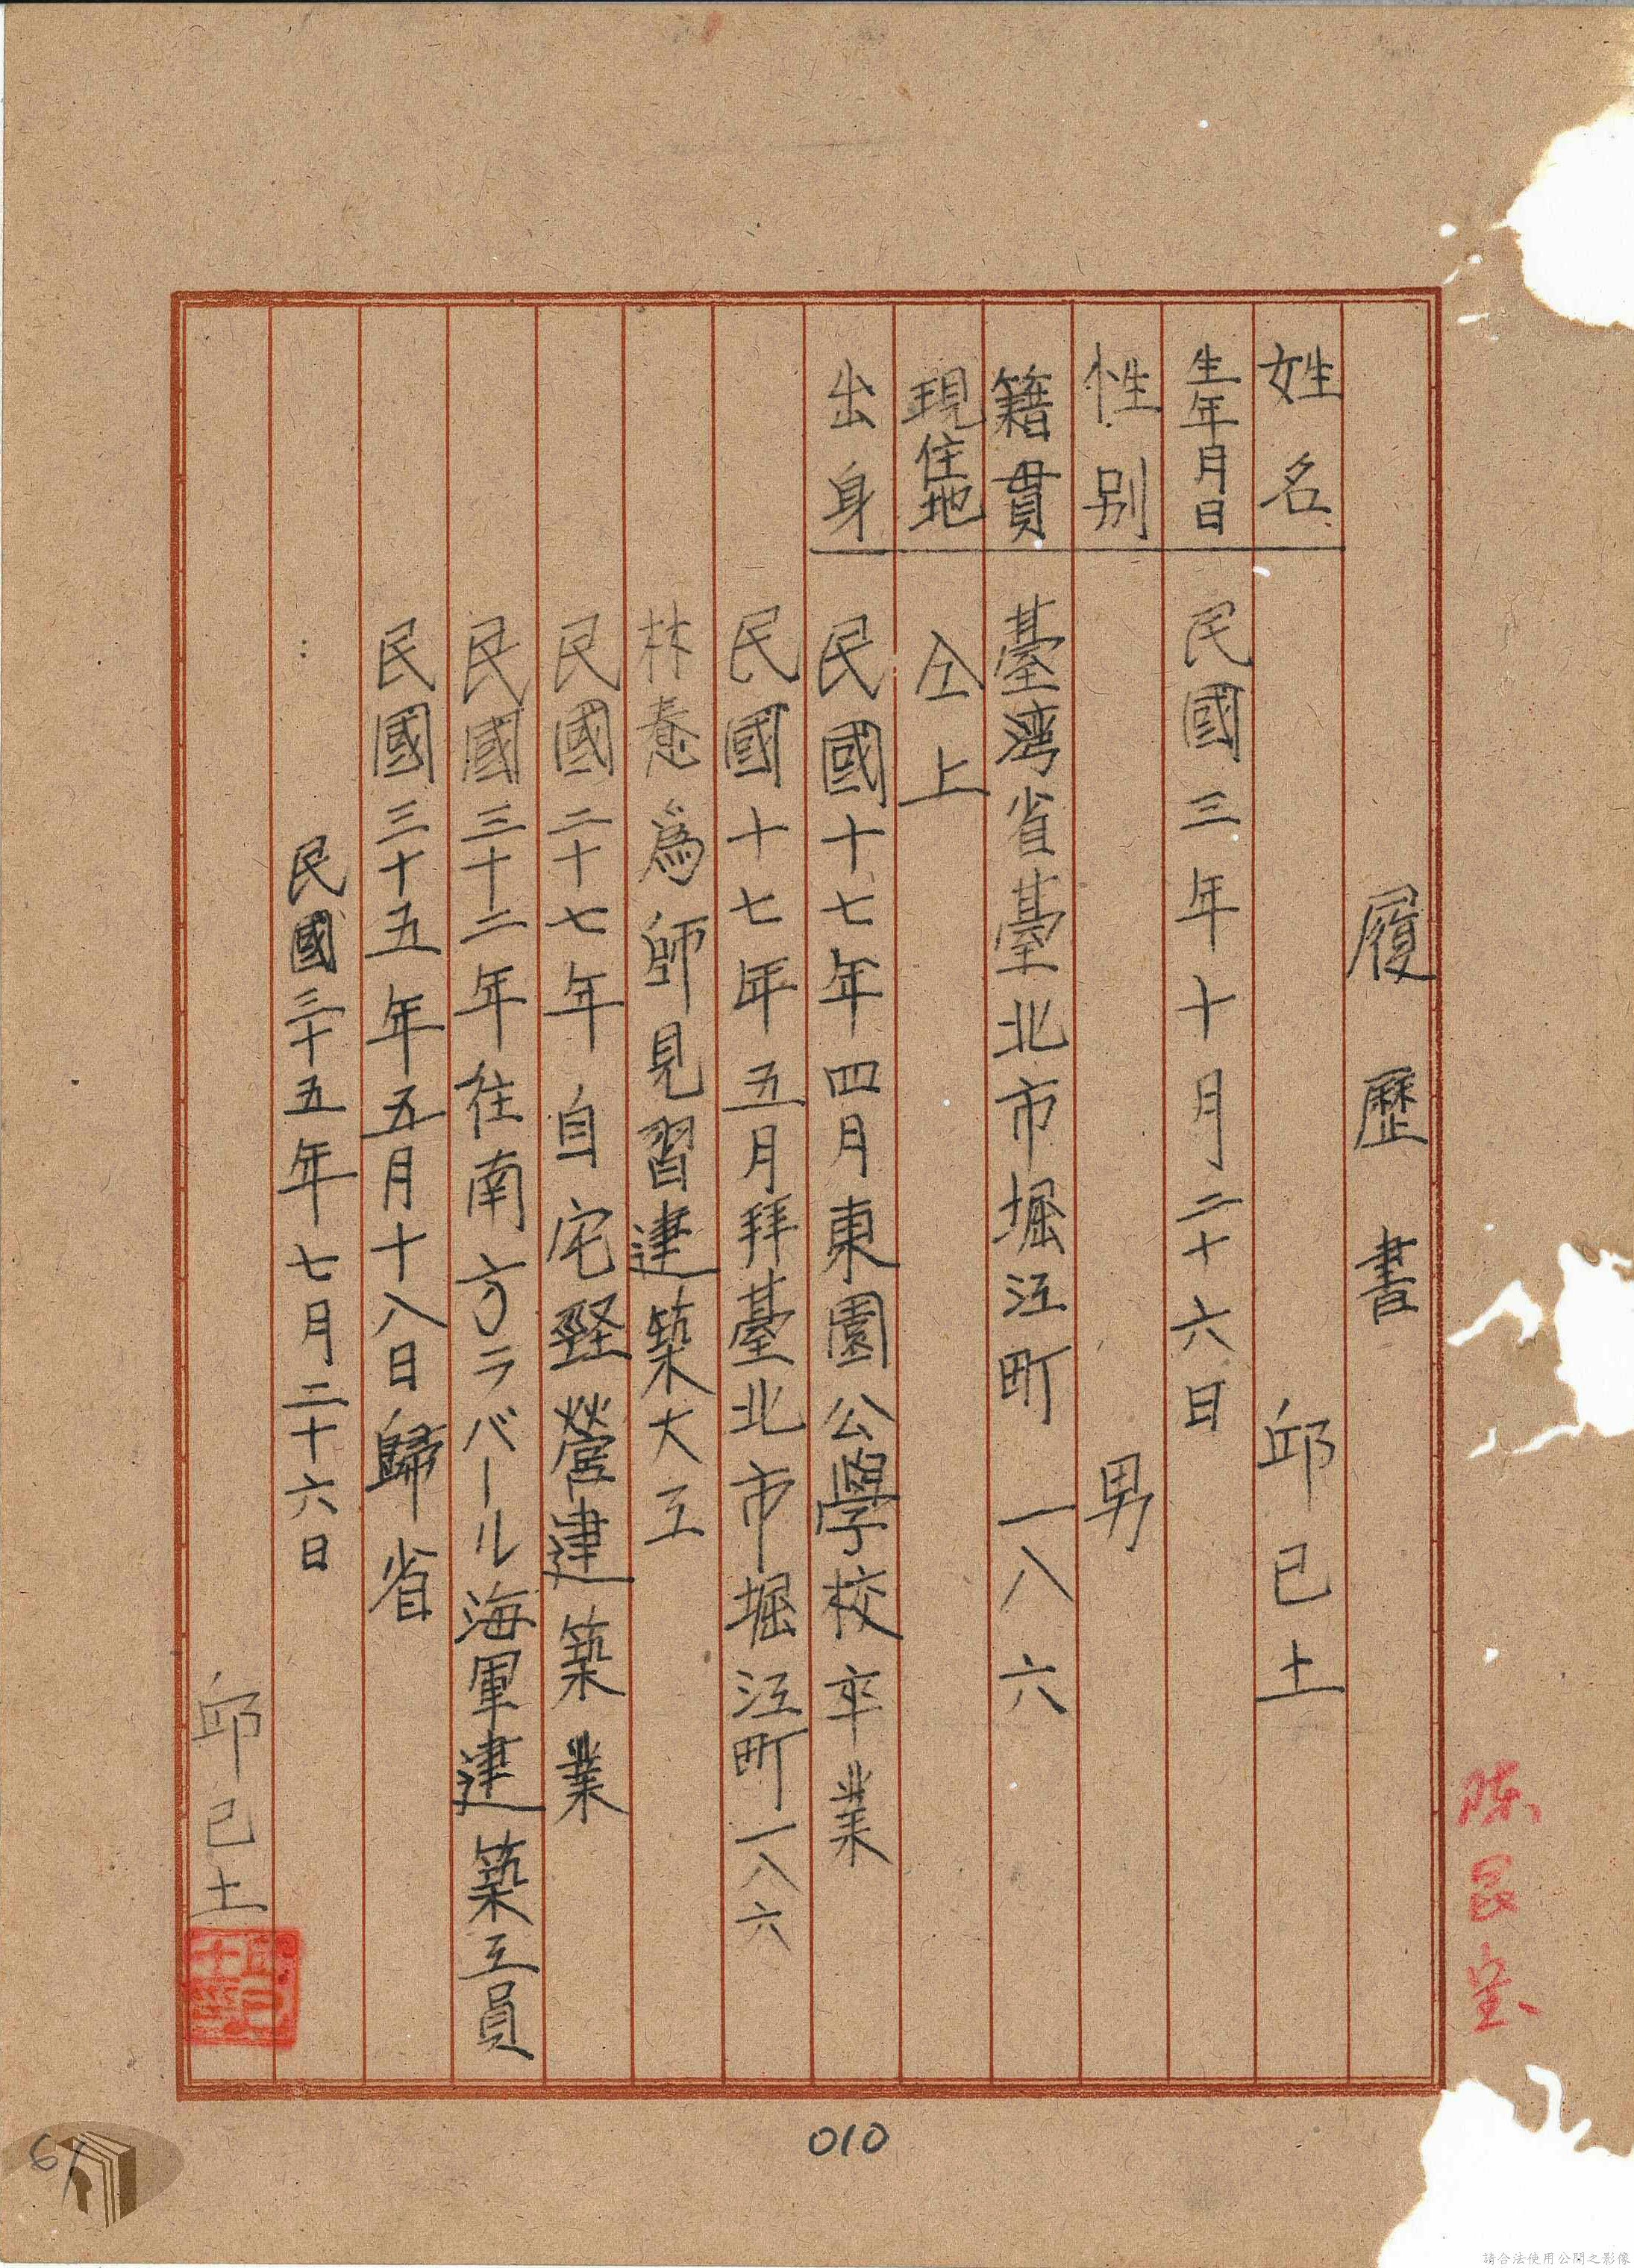 履歷書
姓名 邱已土
生年月日 民國三年十月二十六日
性別 男
籍貫 臺湾省臺北市堀江町一八六
現住地 仝上
出身 民國十七年四月東園公學校卒業
民國十七年五月拜臺北市堀江町一八六
林為師見習建築大工
民國二十七年自宅經營建築業
民國三十二年往南方ラバール海軍建築工員
民國三十五年五月十八日歸省
民國三十五年七月二十六日
邱已土
010
61
請合法使用公開之影像